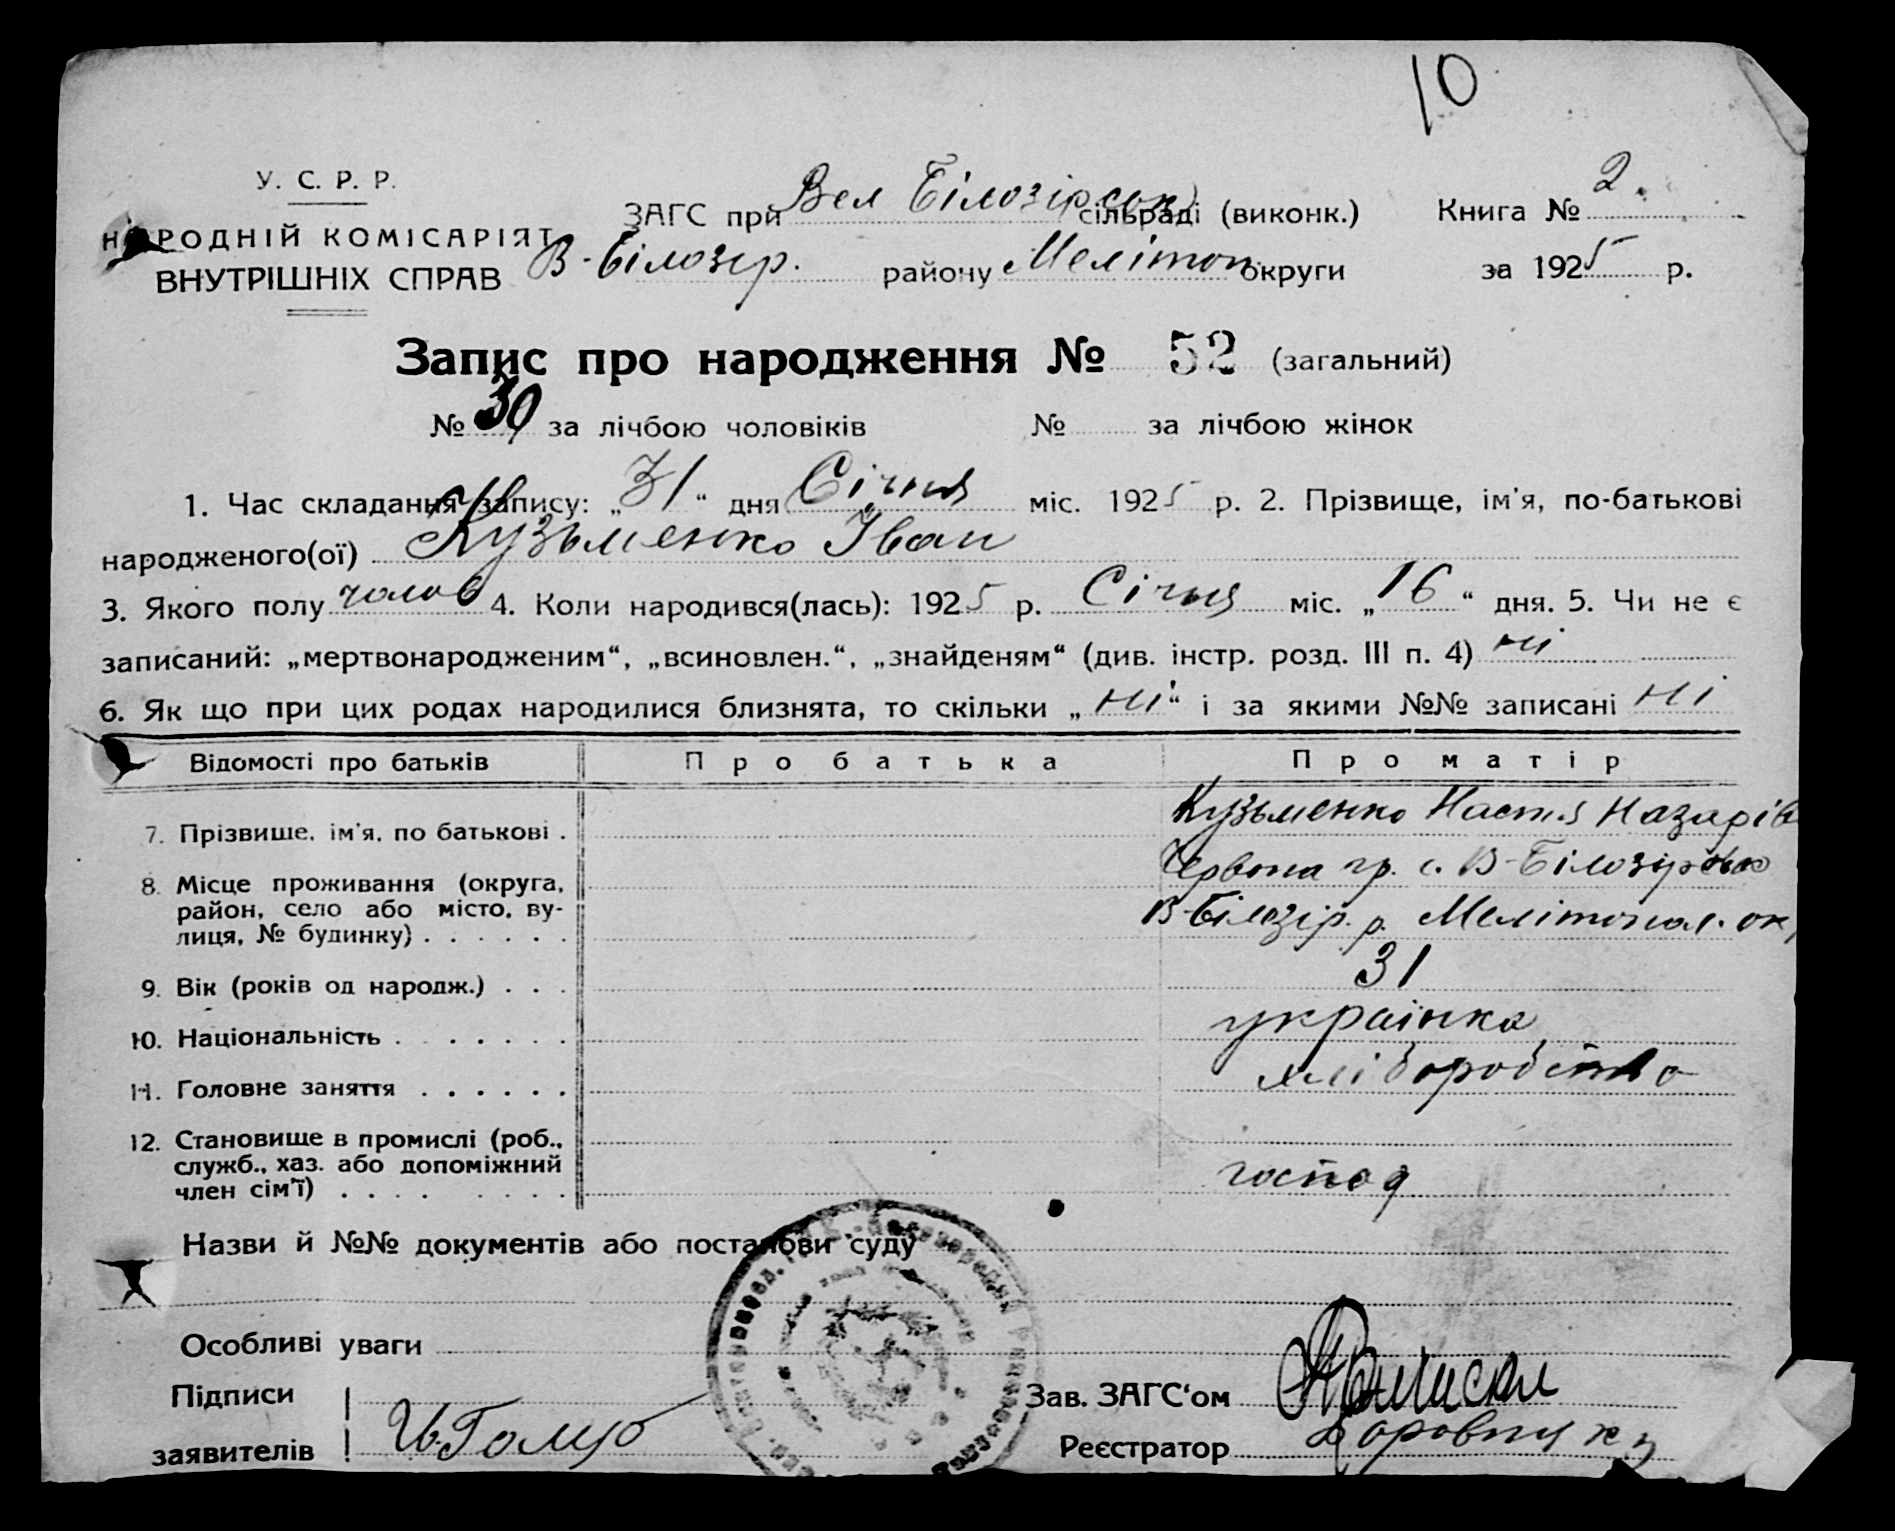 10
У. С. Р. Р.
НАРОДНІЙ КОМІСАРІЯТ
ВНУТРІШНІХ СПРАВ
ЗАГС при Вел Білозірськ сільраді (виконк.) Книга № 2.
В-Білозір. району Мелітоп. округи за 1925 р.
Запис про народження № 52 (загальний)
№ 30 за лічбою чоловіків № за лічбою жінок
1. Час складання запису: „31“ дня Січня міс. 1925 р. 2. Прізвище, ім'я, по-батькові
народженого(ої) Кузьменко Іван
3. Якого полу чолов 4. Коли народився(лась): 1925 р. Січня міс. „16“ дня. 5. Чи не є
записаний: „мертвонародженим“, „всиновлен.“, „знайденям“ (див. інстр. розд. III п. 4) ні
6. Як що при цих родах народилися близнята, то скільки „ні“ і за якими №№ записані ні
Відомості про батьків Про батька Про матір
7. Прізвище, ім'я, по батькові . Кузьменко Настя Назарів
8. Місце проживання (округа, Червона гр. с. В-Білозірка
район, село або місто, ву-
лиця, № будинку) . . . . . . В-Білозір. р. Мелітопол. ок.
9. Вік (років од народж.) . . . 31
10. Національність . . . . . . . українка
11. Головне заняття . . . . . . хліборобство
12. Становище в промислі (роб.,
служб., хаз. або допоміжний
член сім'ї) . . . . . . . . . господ
Назви й №№ документів або постанови суду
Особливі уваги
Підписи Зав. ЗАГС‘ом
заявителів Реєстратор